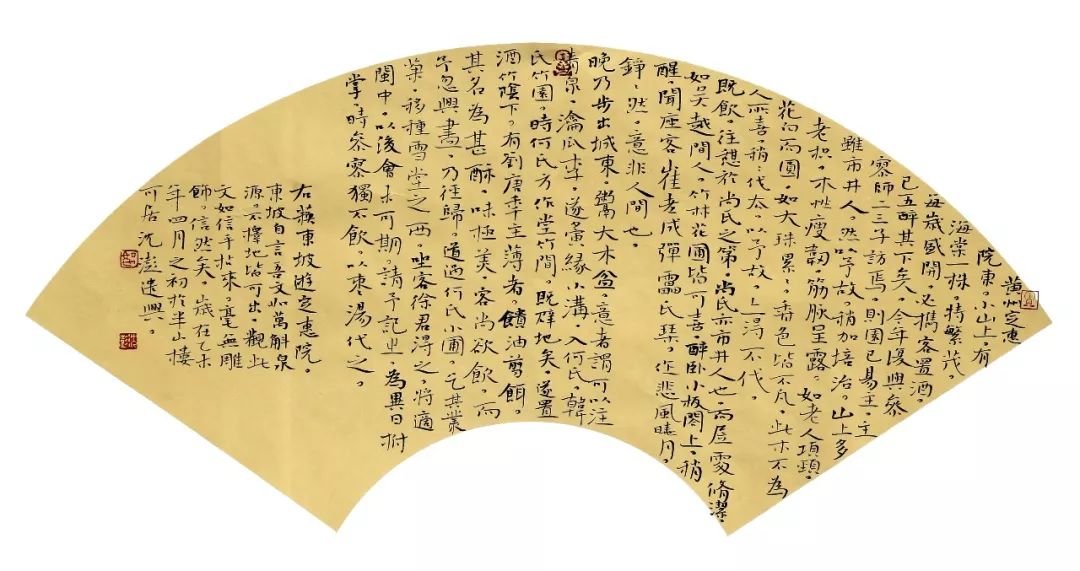 黃州定惠
院東，小山上，有
海棠一株，特繁茂。
每歲盛開，必攜客置酒，
已五醉其下矣，今年復與參
寥師二三子訪焉，則園已易主，主
雖市井人，然以予故，稍加培治。山上多
老枳，木性瘦韌，筋脈呈露，如老人項頸。
花白而圓，如大珠累累，香色皆不凡，此木不為
人所喜，稍稍伐去，以予故，亦得不伐。
既飲，往憩於尚氏之第，尚氏亦市井人也，而居處脩潔，
如吳越間人，竹林花圃皆可喜，醉臥小板閣上，稍
醒，聞座客崔老成彈靁氏琴，作悲風曉月，
錚錚然，意非人間也。
晚乃步出城東，鬻大木盆，意者謂可以注
清泉，瀹瓜李，遂夤緣小溝，入何氏、韓
氏竹園，時何氏方作堂竹間，既闢地矣，遂置
酒竹蔭下，有劉唐年主薄者，饋油煎餌，
其名為甚酥，味極美，客尚欲飲，而
予忽興盡，乃徑歸，道過何氏小圃，乞其叢
橘，移種雪堂之西，坐客徐君得之，將適
閩中，以後會未可期，請予記之，為異日拊
掌，時參寥獨不飲，以棗湯代之。
右蘇東坡遊定惠院，
東坡自言吾文如萬斛泉
源，不擇地皆可出，觀此
文如信手拈來，毫無雕
飾，信然矣，歲在乙未
年四月之初於半山樓
可居沈彭遣興。